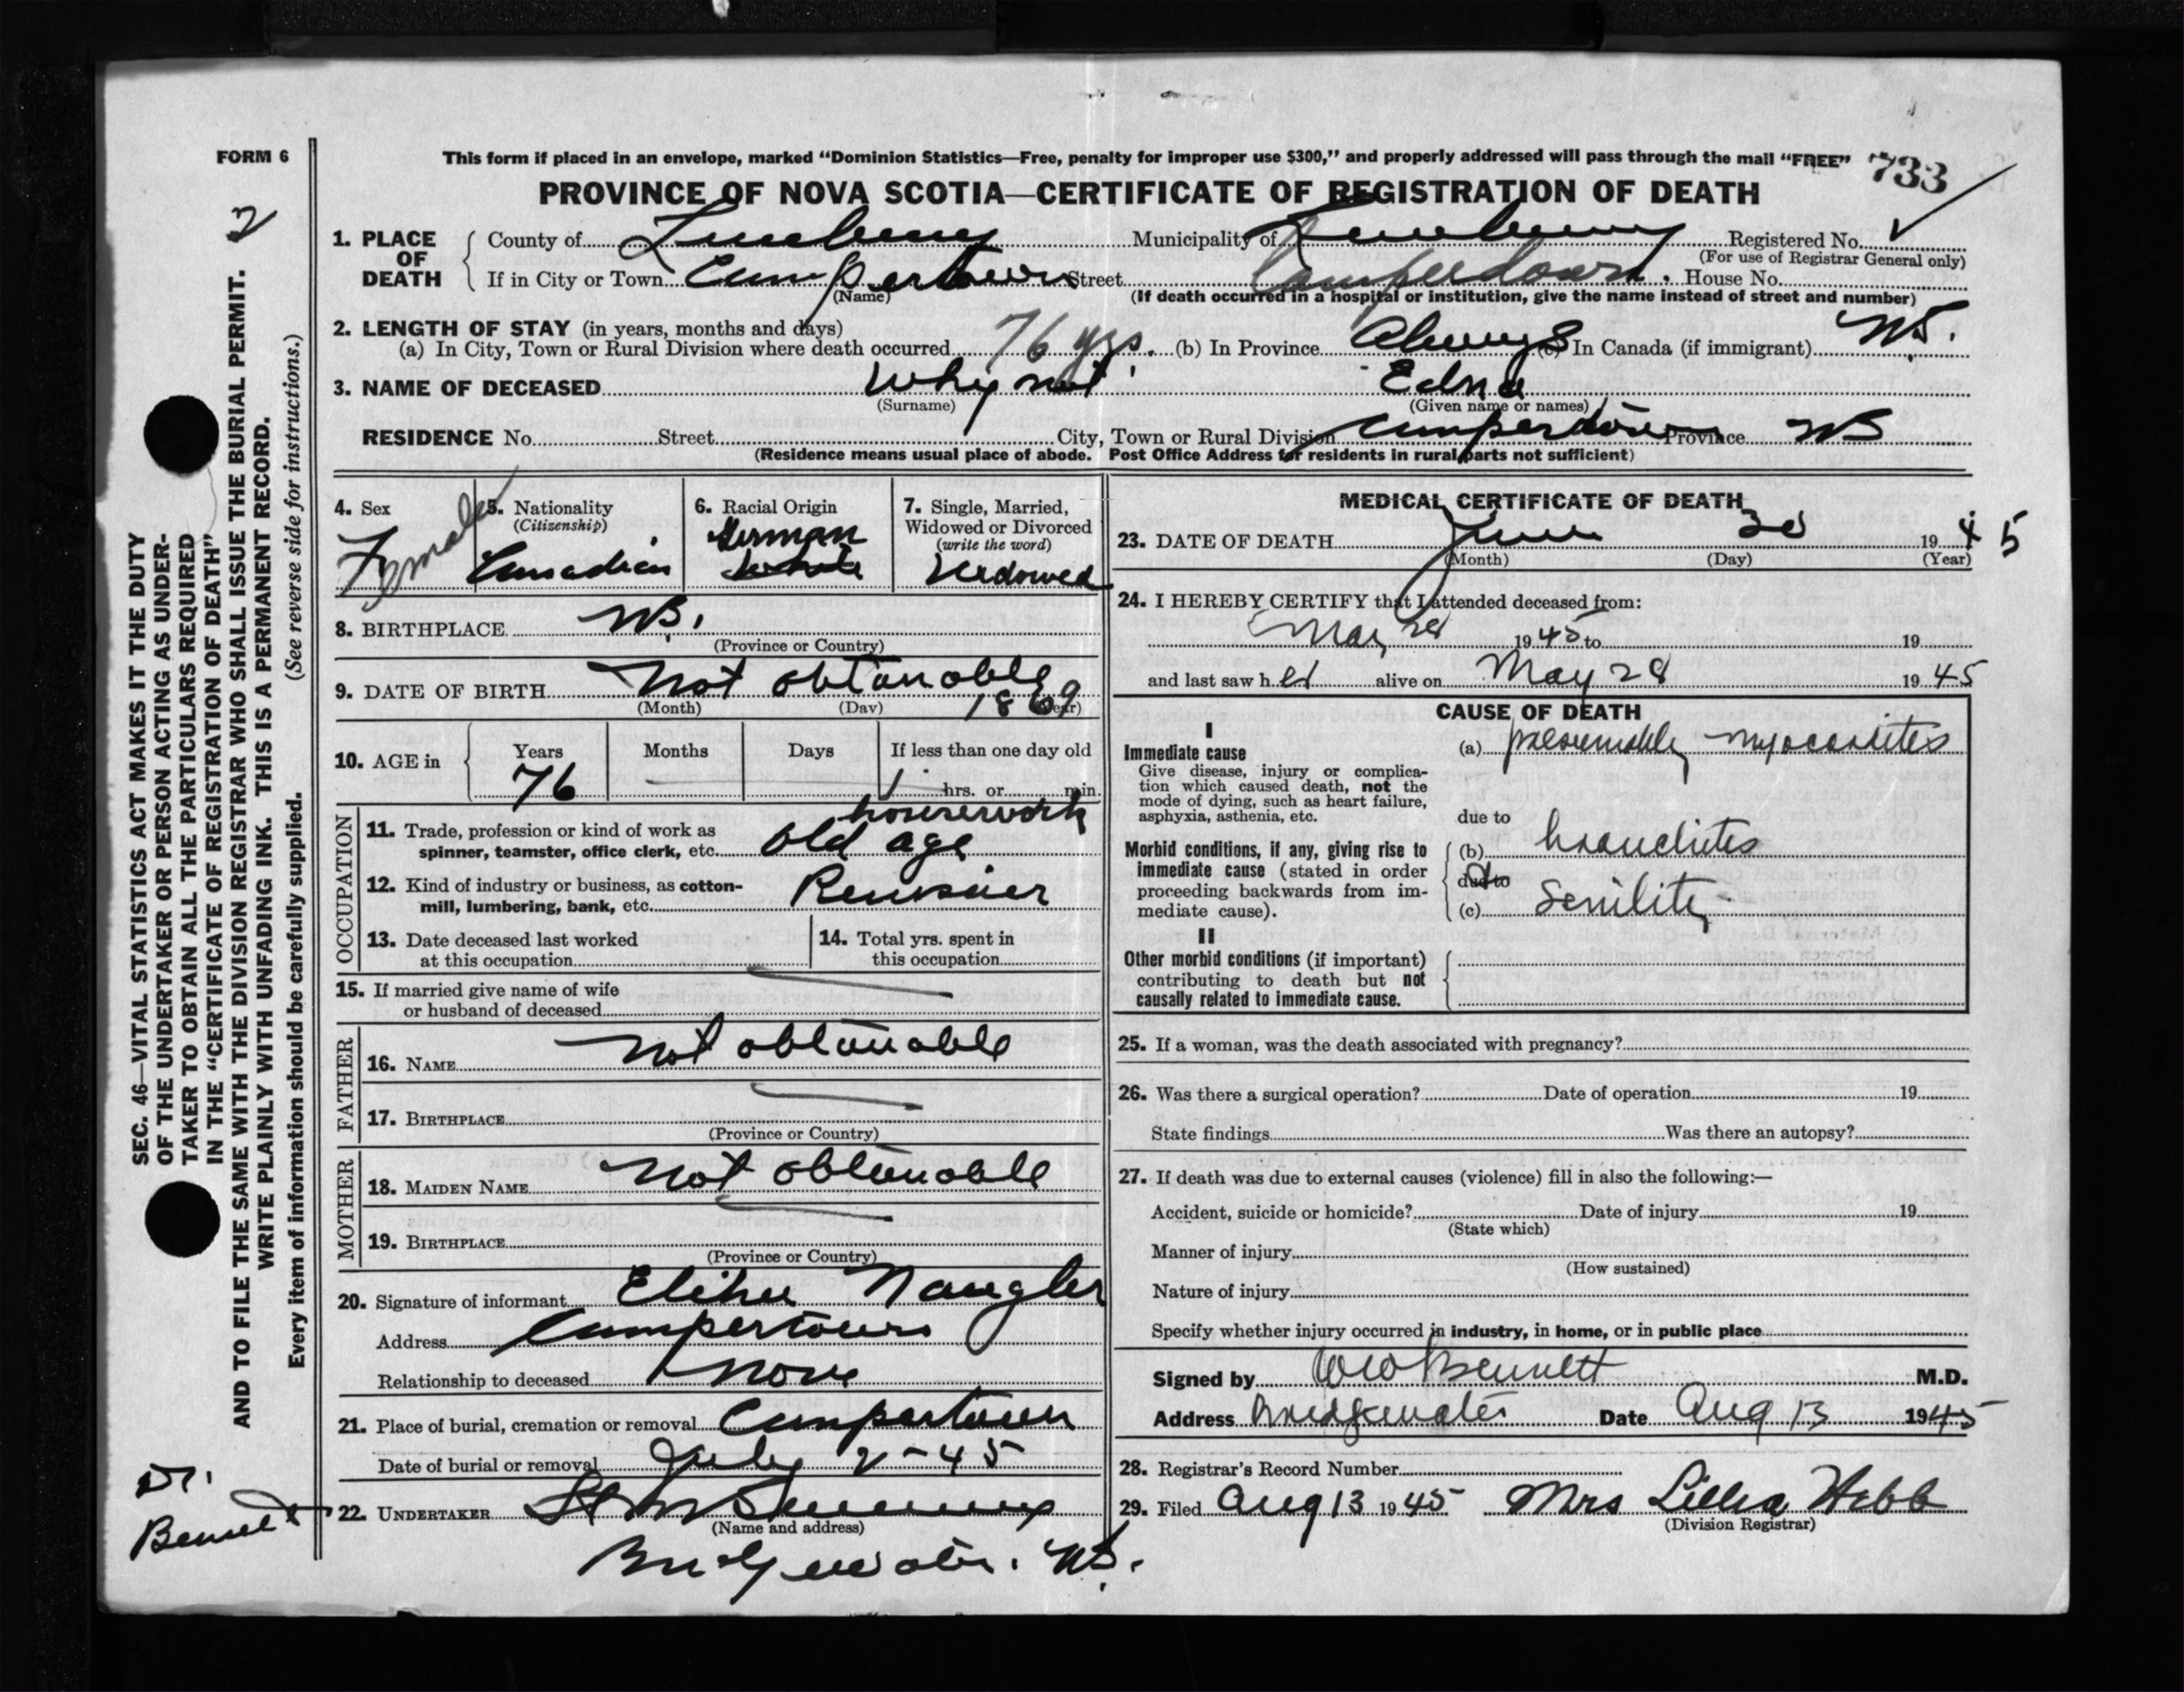 FORM 6
This form if placed in an envelope, marked "Dominion Statistics—Free, penalty for improper use $300," and properly addressed will pass through the mail "FREE"
733
PROVINCE OF NOVA SCOTIA—CERTIFICATE OF REGISTRATION OF DEATH
2
1. PLACE OF DEATH
County of Lunenburg Municipality of Lunenburg Registered No. ✓
(For use of Registrar General only)
If in City or Town Camperdown Street Camperdown. House No.
(Name) (If death occurred in a hospital or institution, give the name instead of street and number)
2. LENGTH OF STAY (in years, months and days)
(a) In City, Town or Rural Division where death occurred 76 yrs. (b) In Province Always (c) In Canada (if immigrant) NS.
3. NAME OF DECEASED Whynot Edna
(Surname) (Given name or names)
RESIDENCE No. Street City, Town or Rural Division Camperdown Province NS
(Residence means usual place of abode. Post Office Address for residents in rural parts not sufficient)
4. Sex
Female
5. Nationality
(Citizenship)
Canadian
6. Racial Origin
German
White
7. Single, Married,
Widowed or Divorced
(write the word)
Widowed
8. BIRTHPLACE NS.
(Province or Country)
9. DATE OF BIRTH Not obtanable 1869
(Month) (Day) (Year)
10. AGE in
Years Months Days If less than one day old
76 — hrs. or min.
OCCUPATION
housework
11. Trade, profession or kind of work as
spinner, teamster, office clerk, etc. old age
12. Kind of industry or business, as cotton-
mill, lumbering, bank, etc.
13. Date deceased last worked
at this occupation
14. Total yrs. spent in
this occupation
15. If married give name of wife
or husband of deceased
FATHER
16. NAME Not obtanable
17. BIRTHPLACE
(Province or Country)
MOTHER
18. MAIDEN NAME Not obtanable
19. BIRTHPLACE
(Province or Country)
20. Signature of informant Elihu Naugler
Address Camperdown
Relationship to deceased None
21. Place of burial, cremation or removal Camperdown
Date of burial or removal July 2-45
22. UNDERTAKER
(Name and address)
Bridgewater. NS.
MEDICAL CERTIFICATE OF DEATH
23. DATE OF DEATH June 30 1945
(Month) (Day) (Year)
24. I HEREBY CERTIFY that I attended deceased from:
May 28 1945 to 19
and last saw her alive on May 28 1945
CAUSE OF DEATH
I
Immediate cause
Give disease, injury or complica-
tion which caused death, not the
mode of dying, such as heart failure,
asphyxia, asthenia, etc.
(a) presumably myocarditis
due to
Morbid conditions, if any, giving rise to
immediate cause (stated in order
proceeding backwards from im-
mediate cause).
(b) bronchitis
due to
(c) Senility
II
Other morbid conditions (if important)
contributing to death but not
causally related to immediate cause.
25. If a woman, was the death associated with pregnancy?
26. Was there a surgical operation? Date of operation 19
State findings Was there an autopsy?
27. If death was due to external causes (violence) fill in also the following:—
Accident, suicide or homicide? Date of injury 19
(State which)
Manner of injury
(How sustained)
Nature of injury
Specify whether injury occurred in industry, in home, or in public place
Signed by WW Bennett M.D.
Address Bridgewater Date Aug 13 1945
28. Registrar's Record Number
29. Filed Aug 13 1945 Mrs Lillia Webb
(Division Registrar)
SEC. 46—VITAL STATISTICS ACT MAKES IT THE DUTY
OF THE UNDERTAKER OR PERSON ACTING AS UNDER-
TAKER TO OBTAIN ALL THE PARTICULARS REQUIRED
IN THE "CERTIFICATE OF REGISTRATION OF DEATH"
AND TO FILE THE SAME WITH THE DIVISION REGISTRAR WHO SHALL ISSUE THE BURIAL PERMIT.
WRITE PLAINLY WITH UNFADING INK. THIS IS A PERMANENT RECORD.
Every item of information should be carefully supplied. (See reverse side for instructions.)
Dr.
Bennett